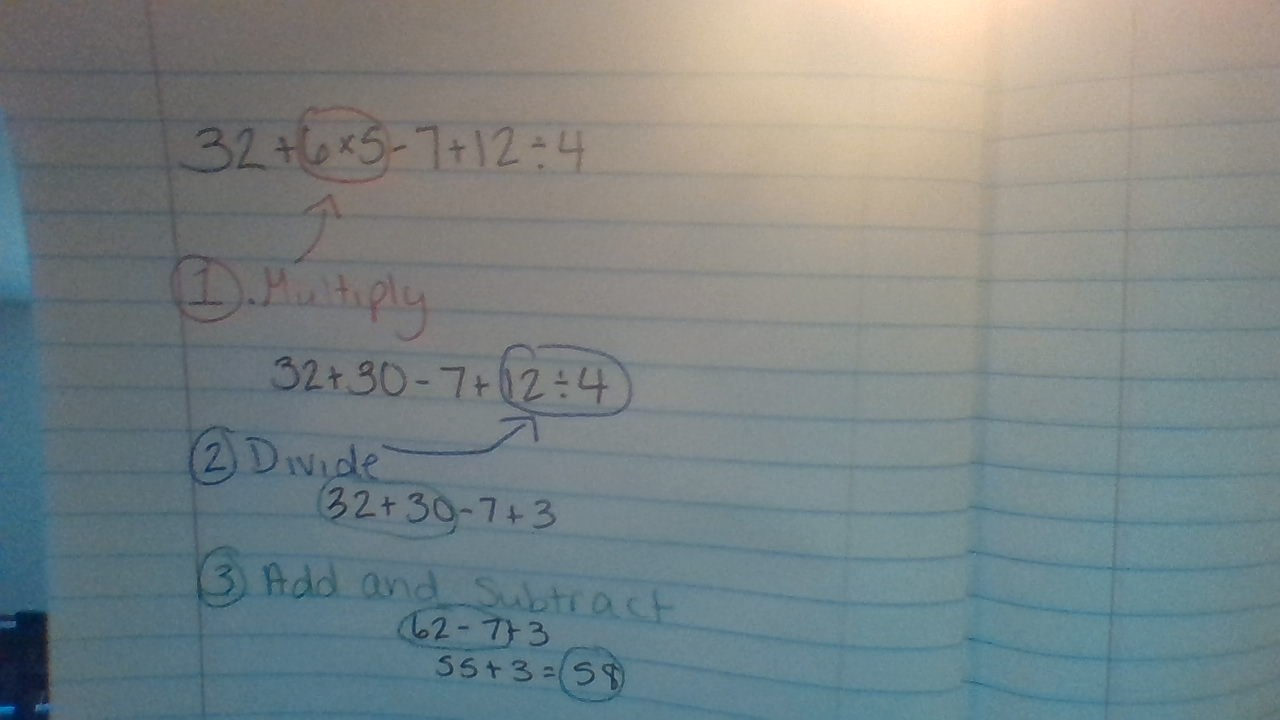 32+6×5-7+12÷4
1. Multiply
32+30-7+12÷4
2 Divide
32+30-7+3
3 Add and Subtract
62-7+3
55+3=58